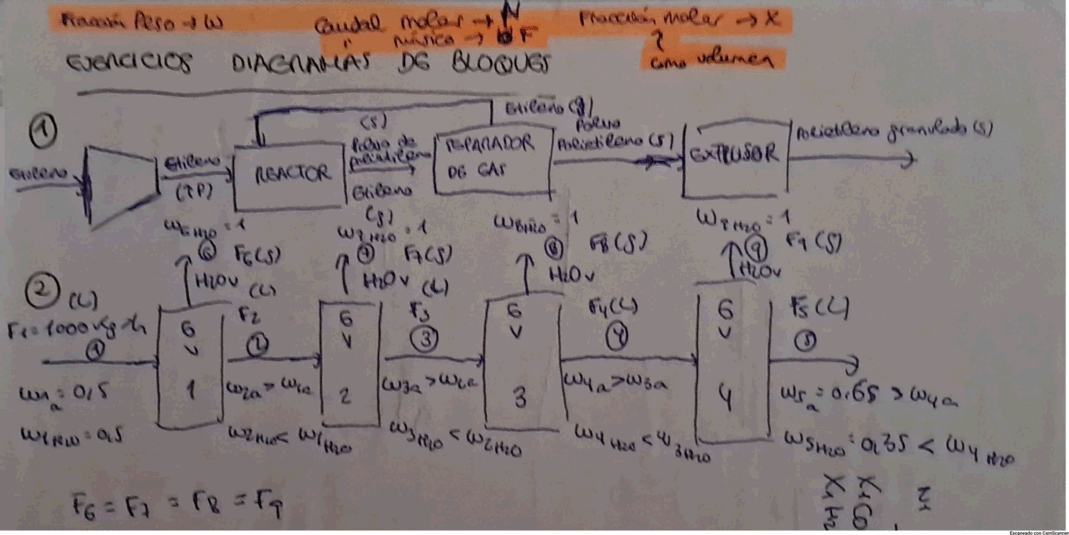 Fracción Peso → W
Caudal molar → N
" másico → F
Fracción molar → X
como volumen
EJERCICIOS DIAGRAMAS DE BLOQUES
①
Etileno
Etileno
(↑P)
REACTOR
(s)
Polvo de
polietileno
Etileno
(g)
SEPARADOR
DE GAS
Etileno (g)
Polvo
Polietileno (s)
EXTRUSOR
Polietileno granulado (s)
②
(L)
F1 = 1000 kg/h
①
W1a = 0,5
W1H2O = 0,5
W6H2O = 1
⑥ F6 (g)
H2Ov
6
V
1
(L)
F2
②
W2a > W1a
W2H2O < W1H2O
W7H2O = 1
⑦ F7 (g)
H2Ov
6
V
2
(L)
F3
③
W3a > W2a
W3H2O < W2H2O
W8H2O = 1
⑧ F8 (g)
H2Ov
6
V
3
F4 (L)
④
W4a > W3a
W4H2O < W3H2O
W9H2O = 1
⑨ F9 (g)
H2Ov
6
V
4
F5 (L)
⑤
W5a = 0,65 > W4a
W5H2O = 0,35 < W4H2O
F6 = F7 = F8 = F9
Escaneado con CamScanner